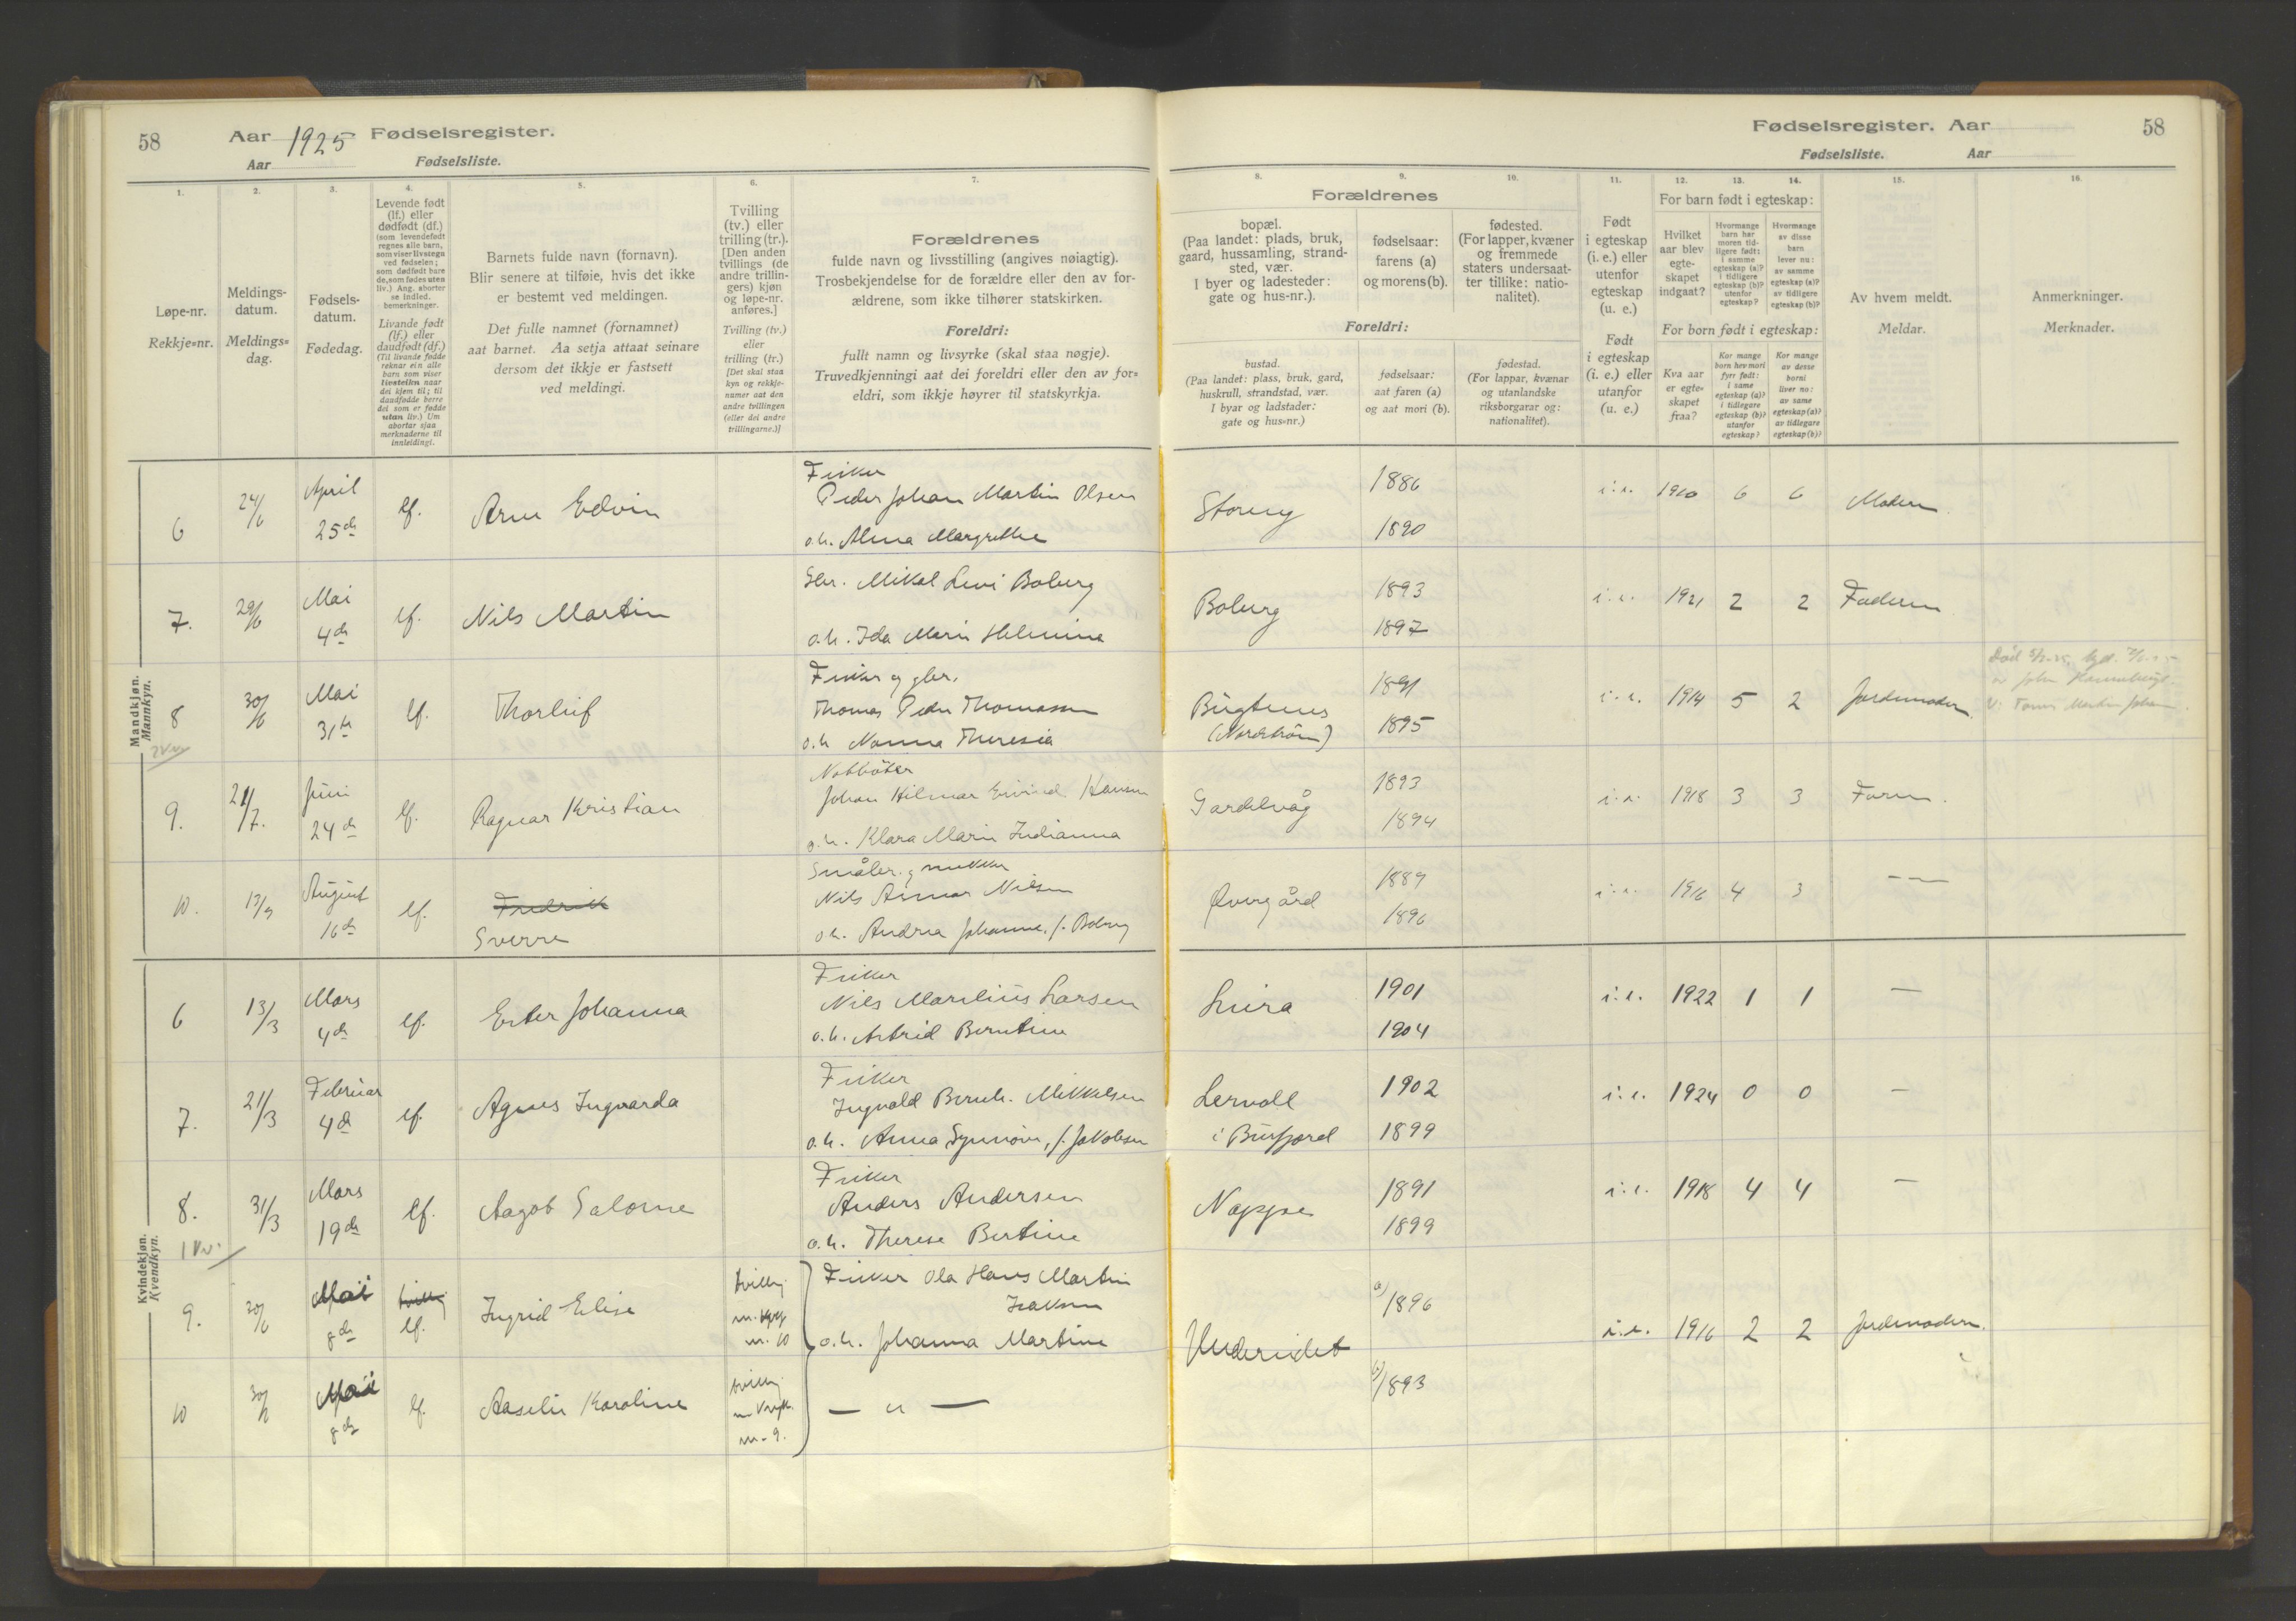 58
Aar 1925 Fødselsregister.
Aar Fødselsliste.
Fødselsregister. Aar
58
Fødselsliste. Aar
1.
Løpe-nr.
Rekkje=nr.
2.
Meldings-
datum.
Meldings=
dag.
3.
Fødsels-
datum.
Fødedag.
4.
Levende født
(lf.) eller
dødfødt (df.)
(som levendefødt
regnes alle barn,
som viser livstegn
ved fødselen;
som dødfødt bare
de, som fødes uten
liv.) Ang. aborter
se indled.
bemerkninger.
Livande født
(lf.) eller
daudfødt (df.)
(Til livande fødde
reknar ein alle
barn som viser
livsteikn naar
dei kjem til; til
daudfødde berre
dei som er fødde
utan liv.) Um
abortar sjaa
merknaderne til
innleidingi.
5.
Barnets fulde navn (fornavn).
Blir senere at tilføie, hvis det ikke
er bestemt ved meldingen.
Det fulle namnet (fornamnet)
aat barnet. Aa setja attaat seinare
dersom det ikkje er fastsett
ved meldingi.
6.
Tvilling
(tv.) eller
trilling (tr.).
[Den anden
tvillings (de
andre trillin-
gers) kjøn
og løpe-nr.
anføres.]
Tvilling (tv.)
eller
trilling (tr.)
[Det skal staa
kyn og rekkje-
numer aat den
andre tvillingen
(eller dei andre
trillingarne.)]
7.
Forældrenes
fulde navn og livsstilling (angives nøiagtig).
Trosbekjendelse for de forældre eller den av for-
ældrene, som ikke tilhører statskirken.
Foreldri:
fullt namn og livsyrke (skal staa nøgje).
Truvedkjenningi aat dei foreldri eller den av for=
eldri, som ikkje høyrer til statskyrkja.
8. 9. 10.
Forældrenes
bopæl.
(Paa landet: plads, bruk,
gaard, hussamling, strand-
sted, vær.
I byer og ladesteder:
gate og hus-nr.).
fødselsaar:
farens (a)
og morens (b).
fødested.
(For lapper, kvæner
og fremmede
staters undersaat-
ter tillike: natio-
nalitet).
Foreldri:
bustad.
(Paa landet: plass, bruk, gard,
huskrull, strandstad, vær.
I byar og ladstader:
gate og hus=nr.)
fødselsaar:
aat faren (a)
og aat mori (b).
fødestad.
(For lappar, kvænar
og utanlandske
riksborgarar og:
nationalitet).
11.
Født
i egteskap
(i. e.) eller
utenfor
egteskap
(u. e.)
Født
i egteskap
(i. e.) eller
utanfor
(u. e.)
12. 13. 14.
For barn født i egteskap:
Hvilket
aar blev
egte-
skapet
indgaat?
Hvormange
barn har
moren tid-
ligere født:
i samme
egteskap (a)?
i tidligere
egteskap (b)?
utenfor
egteskap?
Hvormange
av disse
barn
lever nu:
av samme
egteskap (a)?
av tidligere
egteskap (b)?
For born født i egteskap:
Kva aar
er egte-
skapet
fraa?
Kor mange
born hev mori
fyrr født:
i same
egteskap (a)?
i tidlegare
egteskap (b)?
utanfor
egteskap?
Kor mange
av desse
borni
liver nu:
av same
egteskap (a)?
av tidlegare
egteskap (b)?
15.
Av hvem meldt.
Meldar.
16.
Anmerkninger.
Merknader.
Mandkjøn.
Mannkyn.
6 24/6 April 25de lf. Arne Edvin
Fisker
Peder Johan Martin Olsen
o.h. Alma Margrethe
Storeng 1886 1890 i.e. 1910 6 6 Moderen
7. 29/6 Mai 4de lf. Nils Martin
Gbr. Mikal Levi Boberg
o.h. Ida Marie Helmine
Boberg 1893 1897 i.e. 1921 2 2 Faderen
8 30/6 Mai 31te lf. Thorleif
Fisker og gbr.
Thomas Peder Thomassen
o.h. Nanna Theresia
Bugtenes
(Nordstrøm)
1891 1895 i.e. 1914 5 2 Jordemoder
9. 21/7. Juni 24de lf. Ragnar Kristian
Johan Hilmar Eivind Hansen
o.h. Klara Marie Indianna
1893 1894 i.e. 1918 3 3 Faren.
10. 13/9 August 16de lf. Fredrik
Sverre
Småbr. og snekker
Nils Asmar Nilsen
o.h. Andrea Johanne, f. Boberg
Øvergård 1889 1896 i.e. 1916 4 3 — —
Kvindekjøn.
Kvendkyn.
6 13/3 Mars 4de lf. Ester Johanna
Fisker
Nils Marelius Larsen
o.h. Astrid Berntine
1901 1904 i.e. 1922 1 1 —
7. 21/3 Februar 4de lf. Agnes Ingvarda
Fisker
Ingvald Bernh. Mikkelsen
o.h. Anna Synnøve, f. Jakobsen
Lervoll
i Burfjord
1902 1899 i.e. 1924 0 0 —
8. 31/3 Mars 19de lf. Aagot Salome
Fisker
Anders Andersen
o.h. Therese Bertine
Noppe 1891 1899 i.e. 1918 4 4 —
9. 30/6 Mai 8de lf. Ingrid Elise
tvilling
m. 10
Fisker Ola Hans Martin
Isaksen
o.h. Johanna Martine
a) 1896
b) 1893
i.e. 1916 2 2 Jordemoderen.
10 30/6 Mai 8de lf. Aaselie Karoline
tvilling
m. 9.
— " —